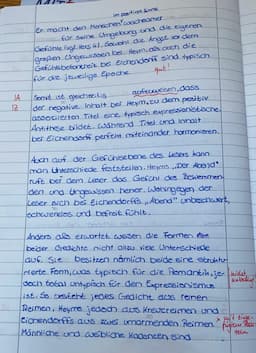 im positiven Sinne
Er macht den Menschen wachsamer
für seine Umgebung und die eigenen
Gefühle. Sowohl die Angst vor dem
großen Ungewissen bei Heym, als auch die
Gefühlsbetontheit bei Eichendorff sind typisch
für die jeweilige Epoche.
gut!
Somit ist gesichert, dass
der negative Inhalt bei Heym zu dem positiv
assoziierten Titel eine typisch expressionistische
Antithese bildet. Während Titel und Inhalt
bei Eichendorff perfekt miteinander harmonieren.
Auch auf der Gefühlsebene des Lesers kann
man Unterschiede feststellen. Heyms „Der Abend"
ruft bei dem Leser das Gefühl des
den und Ungewissen hervor. Wohingegen der
Leser sich bei Eichendorffs „Abend" unbeschwert,
schwerelos und befreit fühlt.
Anders als erwartet weisen die Formen
beider Gedichte nicht allzu viele Unterschiede
auf. Sie besitzen nämlich beide eine struktu-
rierte Form, was typisch für die Romantik, je-
doch total untypisch für den Expressionismus
ist. So besteht jedes Gedicht aus reinen
Reimen, Heyms jedoch aus Kreuzreimen und
Eichendorffs aus zwei umarmenden Reimen.
Männliche und weibliche Kadenzen sind